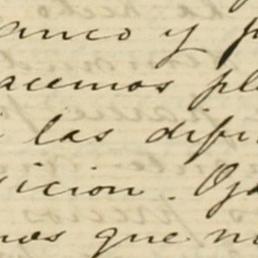 anco y p
acemos pl
las difi
sicion. Oj
nos que n